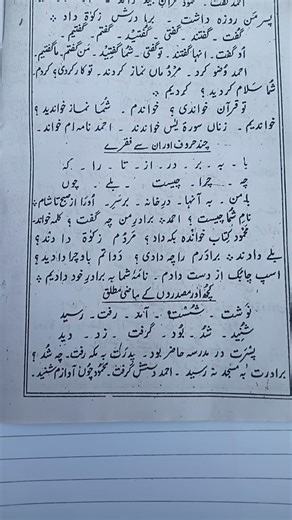 پسر من روزہ داشت ۔ برادرش زکوٰۃ داد ۔
گفت ۔ گفتند ۔ گفتی ۔ گفتید ۔ گفتم ۔ گفتیم ۔
او گفت ۔ انہا گفتند ۔ تو گفتی ۔ شما گفتید ۔ من گفتم ۔ ما گفتیم ۔
احمد وضو کرد ۔ مردماں نماز کردند ۔ تو کار کردی؟ کردم ۔
شما سلام کردید؟ کردیم ۔
تو قرآن خواندی؟ خواندم ۔ شما نماز خواندید؟
خواندیم ۔ زناں سورۂ یٰس خواندند ۔ احمد نامہ ام خواند ۔
چند حروف اور ان سے فقرے
با ۔ بہ ۔ بر ۔ در ۔ از ۔ تا ۔ را ۔ کہ
چہ ۔ چرا ۔ چیست ۔ بلے ۔ چوں
با من ۔ بہ آنہا ۔ در خانہ ۔ بر سر ۔ او را از صبح تا شام ۔
نام شما چیست؟ احمد ۔ برادر من چہ گفت؟ کلمہ خواند
محمود کتاب خواندہ بکہ داد؟ مردم زکوٰۃ دادند؟
بلے دادند ۔ برادرم را چہ دادی؟ دوا تم باو چرا دادید؟
اسپ چابک از دست دادم ۔ نامۂ شما بہ برادر خود دادیم ۔
کچھ اور مصدروں کے ماضی مطلق
نوشت ۔ شست ۔ آمد ۔ رفت ۔ رسید
شنید ۔ شد ۔ بود ۔ گرفت ۔ زد ۔ دید
پسرت در مدرسہ حاضر بود ۔ پدرت بہ مکہ رفت ۔ چہ شد؟
برادرت بہ مسجد نہ رسید ۔ احمد دستش گرفت ۔ محمود چوں آوازم شنید ۔